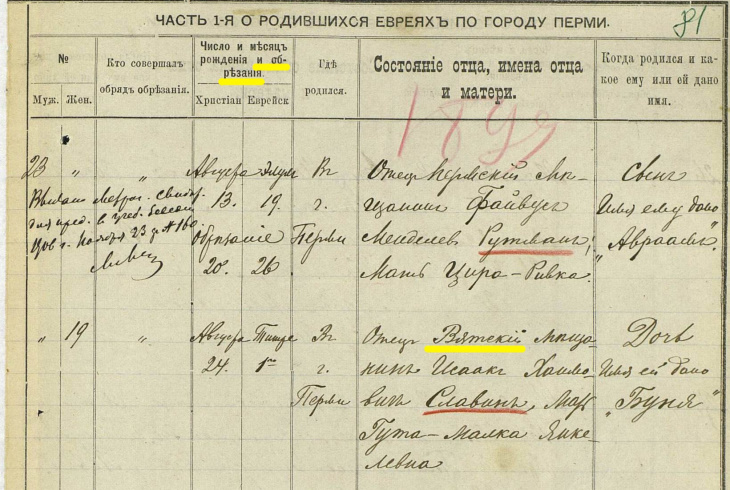 ЧАСТЬ 1-Я О РОДИВШИХСЯ ЕВРЕЯХЪ ПО ГОРОДУ ПЕРМИ.
81
№
Муж. Жен.
Кто совершалъ
обрядъ обрѣзанія.
Число и мѣсяцъ
рожденія и об-
рѣзанія.
Христіан Еврейск
Гдѣ
родился.
Состояніе отца, имена отца
и матери.
Когда родился и ка-
кое ему или ей дано
имя.
23 " "
Августа Элулъ
13. 19.
обрѣзаніе
20. 26
Въ
г.
Перми
Отецъ Пермскій мѣ-
щанинъ Файвушъ
Менделев Рутманъ,
Мать Цира-Ривка.
Сынъ
Имя ему дано
"Авраамъ".
" 19 "
Августа Тишре
24. 1го
Въ
г.
Перми
Отецъ Вятскій мѣща-
нинъ Исаакъ Хаимо-
вичъ Славинъ, Мать
Гута-Малка Янке-
левна
Дочь
Имя ей дано
"Буня"